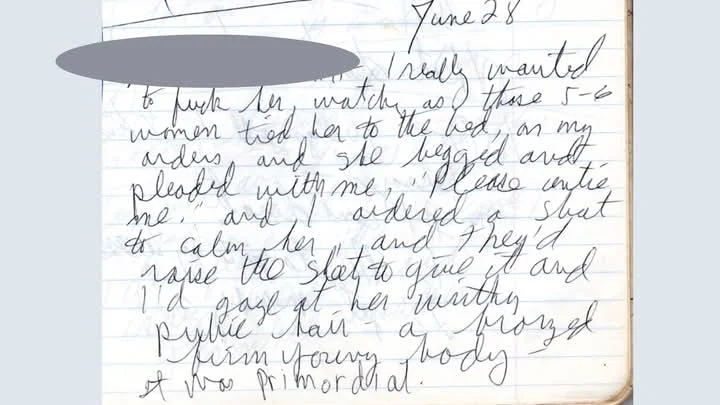 June 28
I really wanted
to fuck her, watch, as those 5-6
women tied her to the bed, on my
orders and she begged and
pleaded with me, "Please untie
me." and I ordered a shot
to calm her, and they'd
raise the sheet to give it and
I'd gaze at her
pubic hair - a bronzed
firm young body -
It was primordial.